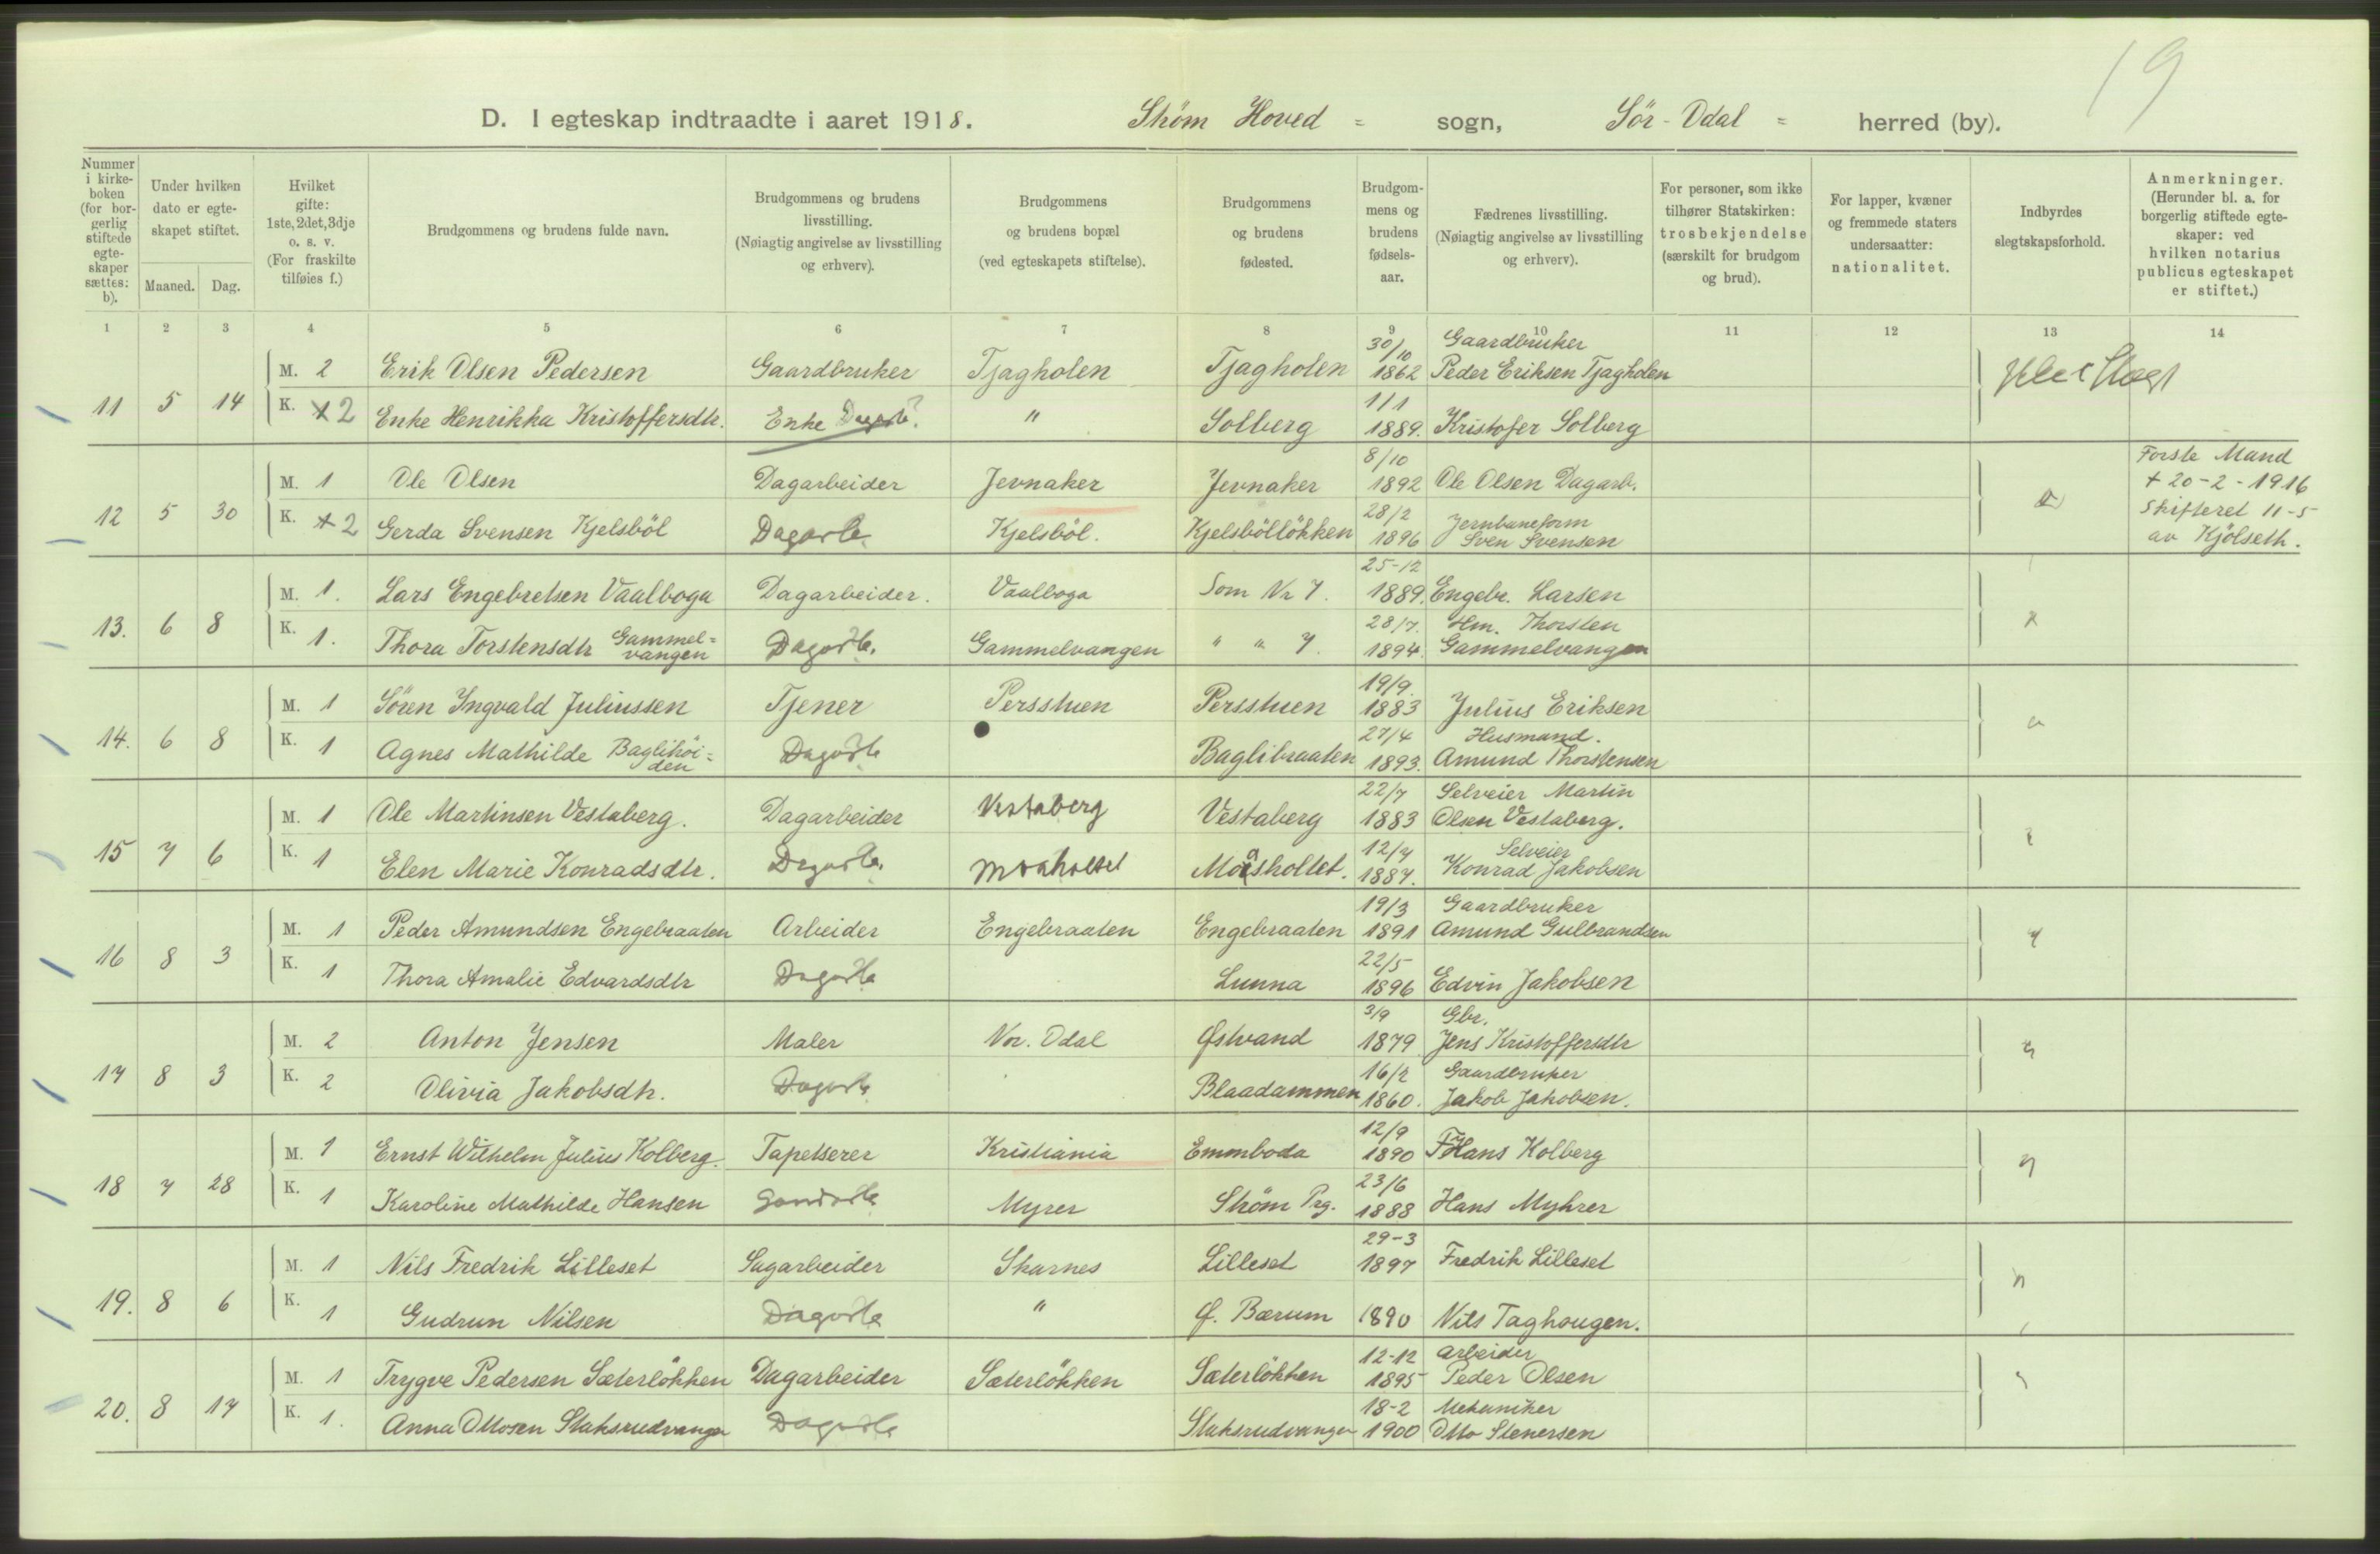 19
D. I egteskap indtraadte i aaret 1918. Strøm Hoved = sogn, Sör-Odal = herred (by).
Nummer i kirkeboken (for borgerlig stiftede egteskaper sættes: b).
Under hvilken dato er egteskapet stiftet.
Maaned. Dag.
Hvilket gifte: 1ste, 2det, 3dje o. s. v. (For fraskilte tilføies f.)
Brudgommens og brudens fulde navn.
Brudgommens og brudens livsstilling. (Nøiagtig angivelse av livsstilling og erhverv).
Brudgommens og brudens bopæl (ved egteskapets stiftelse).
Brudgommens og brudens fødested.
Brudgommens og brudens fødselsaar.
Fædrenes livsstilling. (Nøiagtig angivelse av livsstilling og erhverv).
For personer, som ikke tilhører Statskirken: trosbekjendelse (særskilt for brudgom og brud).
For lapper, kvæner og fremmede staters undersaatter: nationalitet.
Indbyrdes slegtskapsforhold.
Anmerkninger. (Herunder bl. a. for borgerlig stiftede egteskaper: ved hvilken notarius publicus egteskapet er stiftet.)
1 2 3 4 5 6 7 8 9 10 11 12 13 14
M. 2 Erik Olsen Pedersen Gaardbruker Tjagholen Tjagholen 30/10 1862 Gaardbruker Peder Eriksen Tjagholen
11 5 14 K. 2 Enke Henrikka Kristoffersdtr. Enke " Solberg 1/1 1889. Kristofer Solberg
M. 1 Ole Olsen Dagarbeider Jevnaker Jevnaker 8/10 1892 Ole Olsen Dagarb.
12 5 30 K. 2 Gerda Svensen Kjelsböl Kjelsböl. Kjelsböllökken 28/2 1896 Jernbaneform Sven Svensen
Forste Mand
+ 20-2-1916
Skifteret 11-5
av Kjölseth.
M. 1. Lars Engebretsen Vaalboga Dagarbeider. Vaalboga Som Nr 7. 25-12 1889. Engebr. Larsen
13. 6 8 K. 1. Thora Torstensdtr Gammelvangen Gammelvangen " " 7. 28/7. 1894. Hm. Thorsten Gammelvangen
M. 1 Sören Yngvald Juliussen Tjener Persstuen Persstuen 19/9. 1883 Julius Eriksen
14. 6 8 K. 1 Agnes Mathilde Baglihöiden Baglibraaten 27/4 1893. Husmand. Amund Thorstensen
M. 1 Ole Martinsen Vestaberg. Dagarbeider Vestaberg Vestaberg 22/7 1883 Selveier Martin Olsen Vestaberg.
15 7 6 K. 1 Elen Marie Konradsdtr. 12/7 1887. Selveier Konrad Jakobsen
M. 1 Peder Amundsen Engebraaten Arbeider Engebraaten Engebraaten 19/3 1891 Gaardbruker Amund Gulbrandsen
16 8 3 K. 1 Thora Amalie Edvardsdtr Lunna 22/5 1896 Edvin Jakobsen
M. 2 Anton Jensen Maler Nor. Odal Østvand 3/9 1879 Gbr. Jens Kristoffersdtr
17 8 3 K. 2 Olivia Jakobsdtr. Blaadammen 16/2 1860. Gaardbruker Jakob Jakobsen.
M. 1 Ernst Wilhelm Julius Kolberg. Tapetserer Kristiania Emmboda 12/9 1890 Hans Kolberg
18 7 28 K. 1 Karoline Mathilde Hansen Myrer Ström Prg. 23/6 1888 Hans Myhrer
M. 1 Nils Fredrik Lilleset Sagarbeider Skarnes Lilleset 29-3 1897 Fredrik Lilleset
19. 8 6 K. 1 Gudrun Nilsen " Ø. Bærum 1890 Nils Taghougen.
M. 1 Trygve Pedersen Sæterlökken Dagarbeider Sæterlökken Sæterlökken 12-12 1895 Arbeider Peder Olsen
20. 8 17 K. 1. Anna Ottosen Slaksrudvangen Slaksrudvangen 18-2 1900 Mekaniker Otto Stenersen